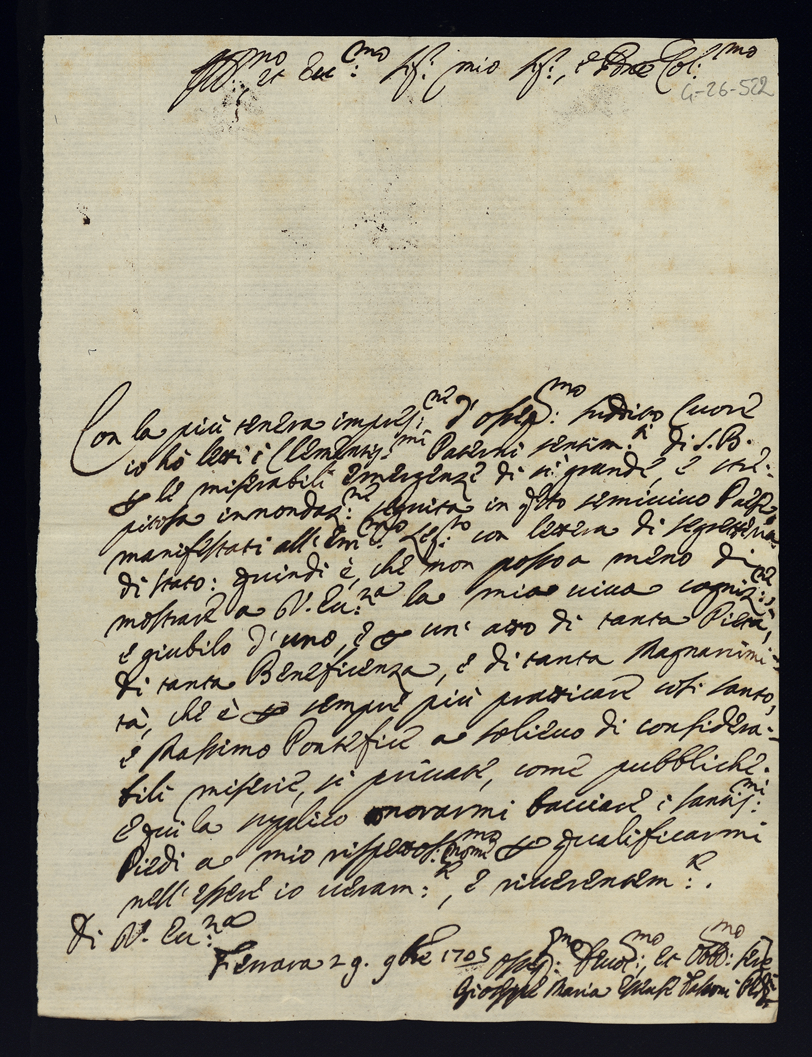 Ill.mo et Ecc.mo Sig.r mio Sig.r, e Prone Col.mo
G-26-522
Con la più tenera impres.ne d'osseq.mo suddito Cuore
io hò letti i Clementis.mi Paterni sentim.ti di S. B.
le miserabili emergenze di sì grande, e stre-
pitosa innondaz.ne seguita in questo semivivo Paese
manifestati all'Em.mo Leg.to con lettera di segretteria
di stato: quindi è, che non posso a meno di
mostrare a V. Ecc.za la mia viva
e giubilo d'uno, e un'atto di tanta Pietà,
di tanta Beneficenza, e di tanta Magnanimi-
tà, che è sempre più praticare così santo,
e Massimo Pontefice a solievo di considera-
bili miserie, sì private, come pubbliche.
E qui la supplico onorarmi bacciare i santis.mi
Piedi a mio rispettos.mo nome qualificarmi
nell'essere io veram.te, e riverentem.te.
Di V. Ecc.za
Ferrara 29. 9bre 1705
Osseq.mo Devot.mo, et Obb.mo Ser.e
Gioseppe Maria Estense Tassoni